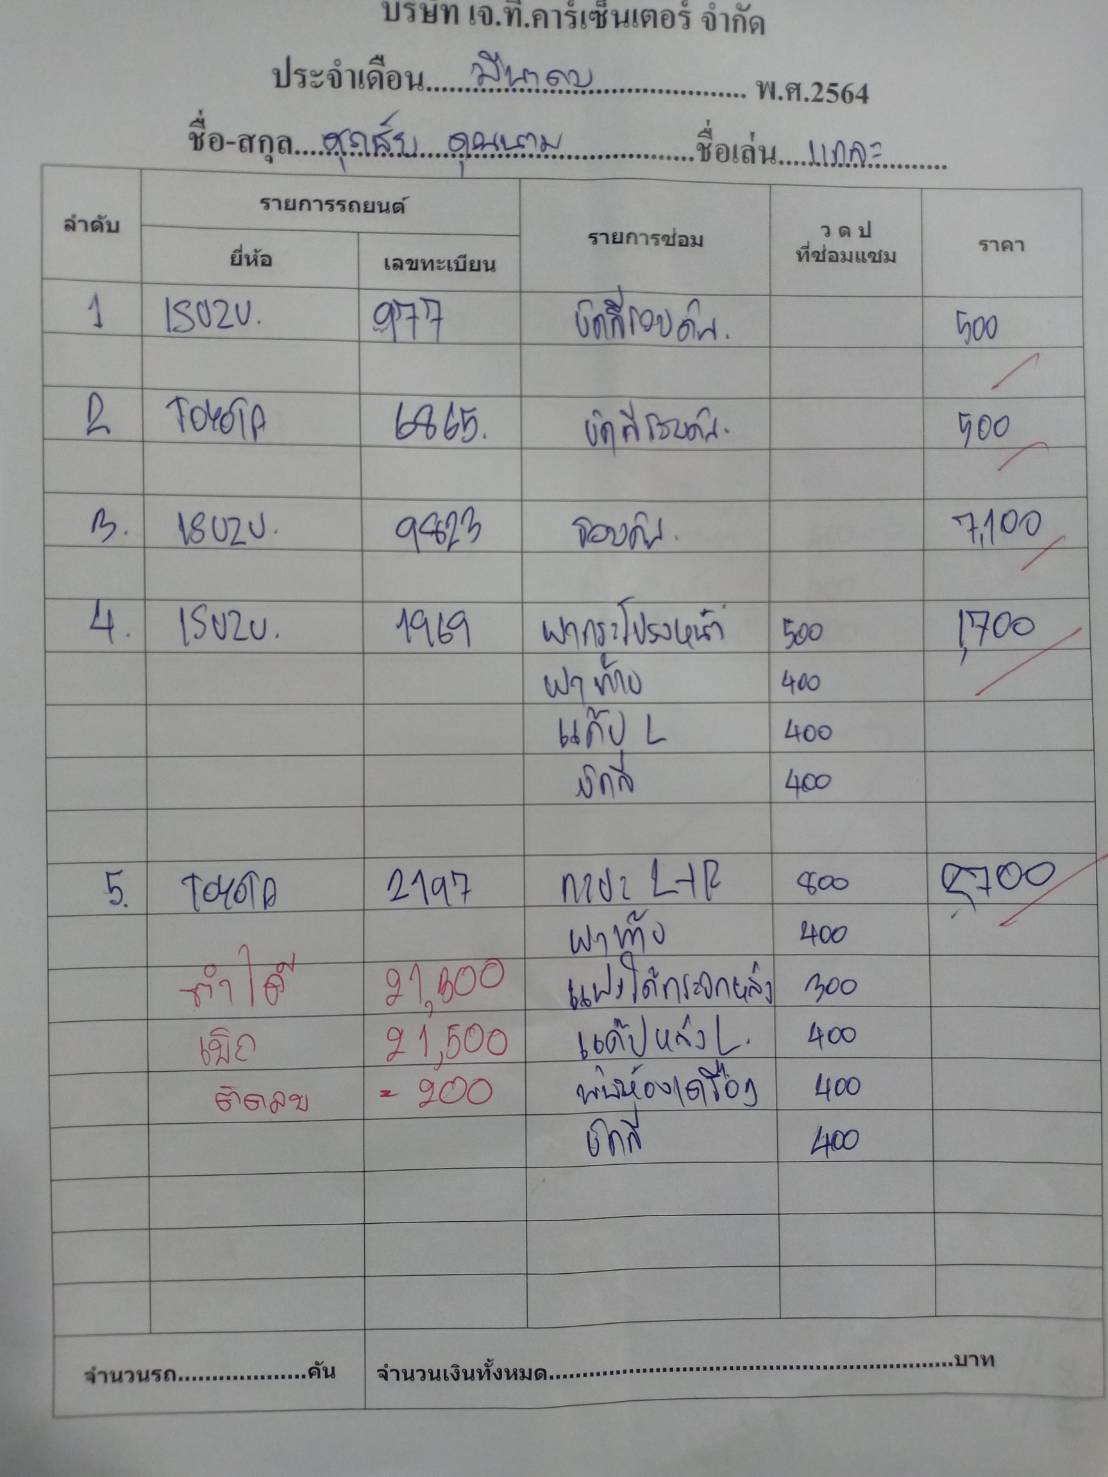 บริษัท เจ.ที.คาร์เซ็นเตอร์ จำกัด
ประจำเดือน....มีนาคม.... พ.ศ.2564
ชื่อ-สกุล.... ....ชื่อเล่น....แกละ....
ลำดับ รายการรถยนต์ รายการซ่อม ว ด ป ที่ซ่อมแซม ราคา
ยี่ห้อ เลขทะเบียน
1 ISUZU. 977 ขัดสีรอบคัน. 500
2 TOYOTA 6865. ขัดสีรอบคัน. 500
3. ISUZU. 9823 รอบคัน. 7,100
4. ISUZU. 1969 ฝากระโปรงหน้า 500 1,700
ฝาท้าย 400
แค๊ป L 400
ขัดสี 400
5. TOYOTA 2197 กะบะ L+R 800 2,700
ฝาท้าย 400
ทำได้ 21,300 แผงใต้กระจกหลัง 300
เบิก 21,500 แค๊ปหลัง L. 400
ติดลบ = 200 พ่นห้องเครื่อง 400
ขัดสี 400
จำนวนรถ....................คัน จำนวนเงินทั้งหมด............................................................บาท